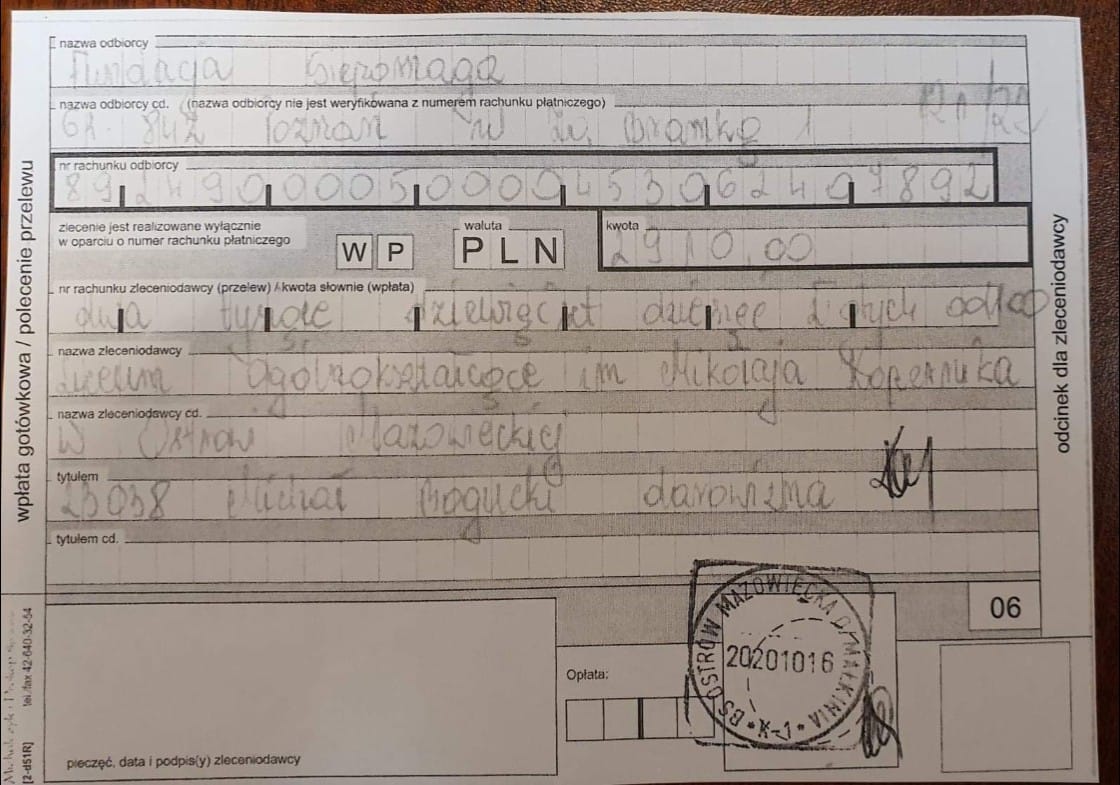 nazwa odbiorcy
Fundacja Siepomaga
nazwa odbiorcy cd. (nazwa odbiorcy nie jest weryfikowana z numerem rachunku płatniczego)
61-842 Poznań Pl Za Bramką 1
nr rachunku odbiorcy
89 2490 0005 0000 4530 6240 7892
zlecenie jest realizowane wyłącznie
w oparciu o numer rachunku płatniczego
W P
waluta
PLN
kwota
2910,00
nr rachunku zleceniodawcy (przelew) / kwota słownie (wpłata)
dwa tysiące dziewięćset dziesięć złotych
nazwa zleceniodawcy
Liceum Ogólnokształcące im Mikołaja Kopernika
nazwa zleceniodawcy cd.
w Ostrów Mazowieckiej
tytułem
23038 Michał Bogucki darowizna
tytułem cd.
06
Opłata:
BS OSTRÓW MAZOWIECKA O/MAŁKINIA
20201016
* K-1 *
pieczęć, data i podpis(y) zleceniodawcy
wpłata gotówkowa / polecenie przelewu
odcinek dla zleceniodawcy
tel./fax 42-640-32-54
[2-d51R]